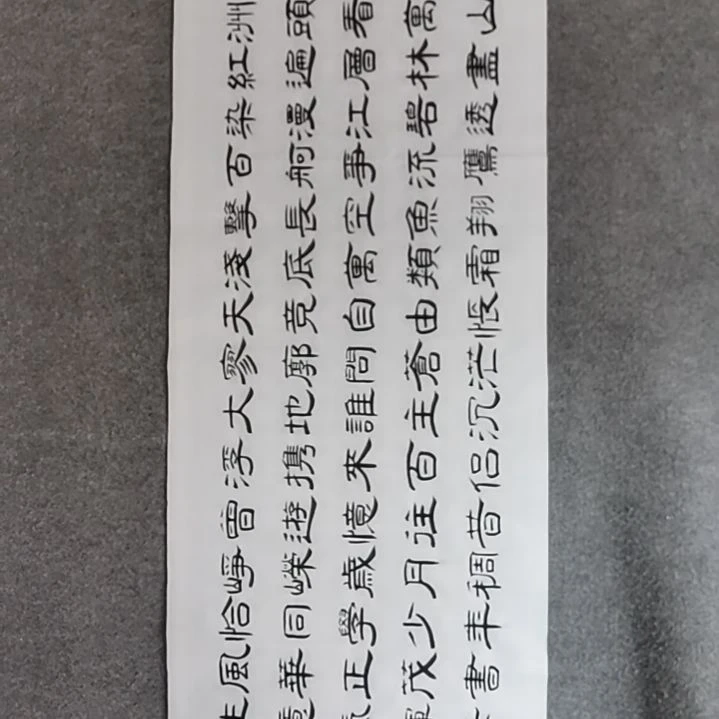 洲頭看萬山
紅遍層林盡
染漫江碧透
百舸爭流鷹
擊長空魚翔
淺底萬類霜
天竞自由悵
寥廓問蒼茫
大地誰主沉
浮携來百侣
曾遊憶往昔
崢嶸歲月稠
恰同學少年
風華正茂書